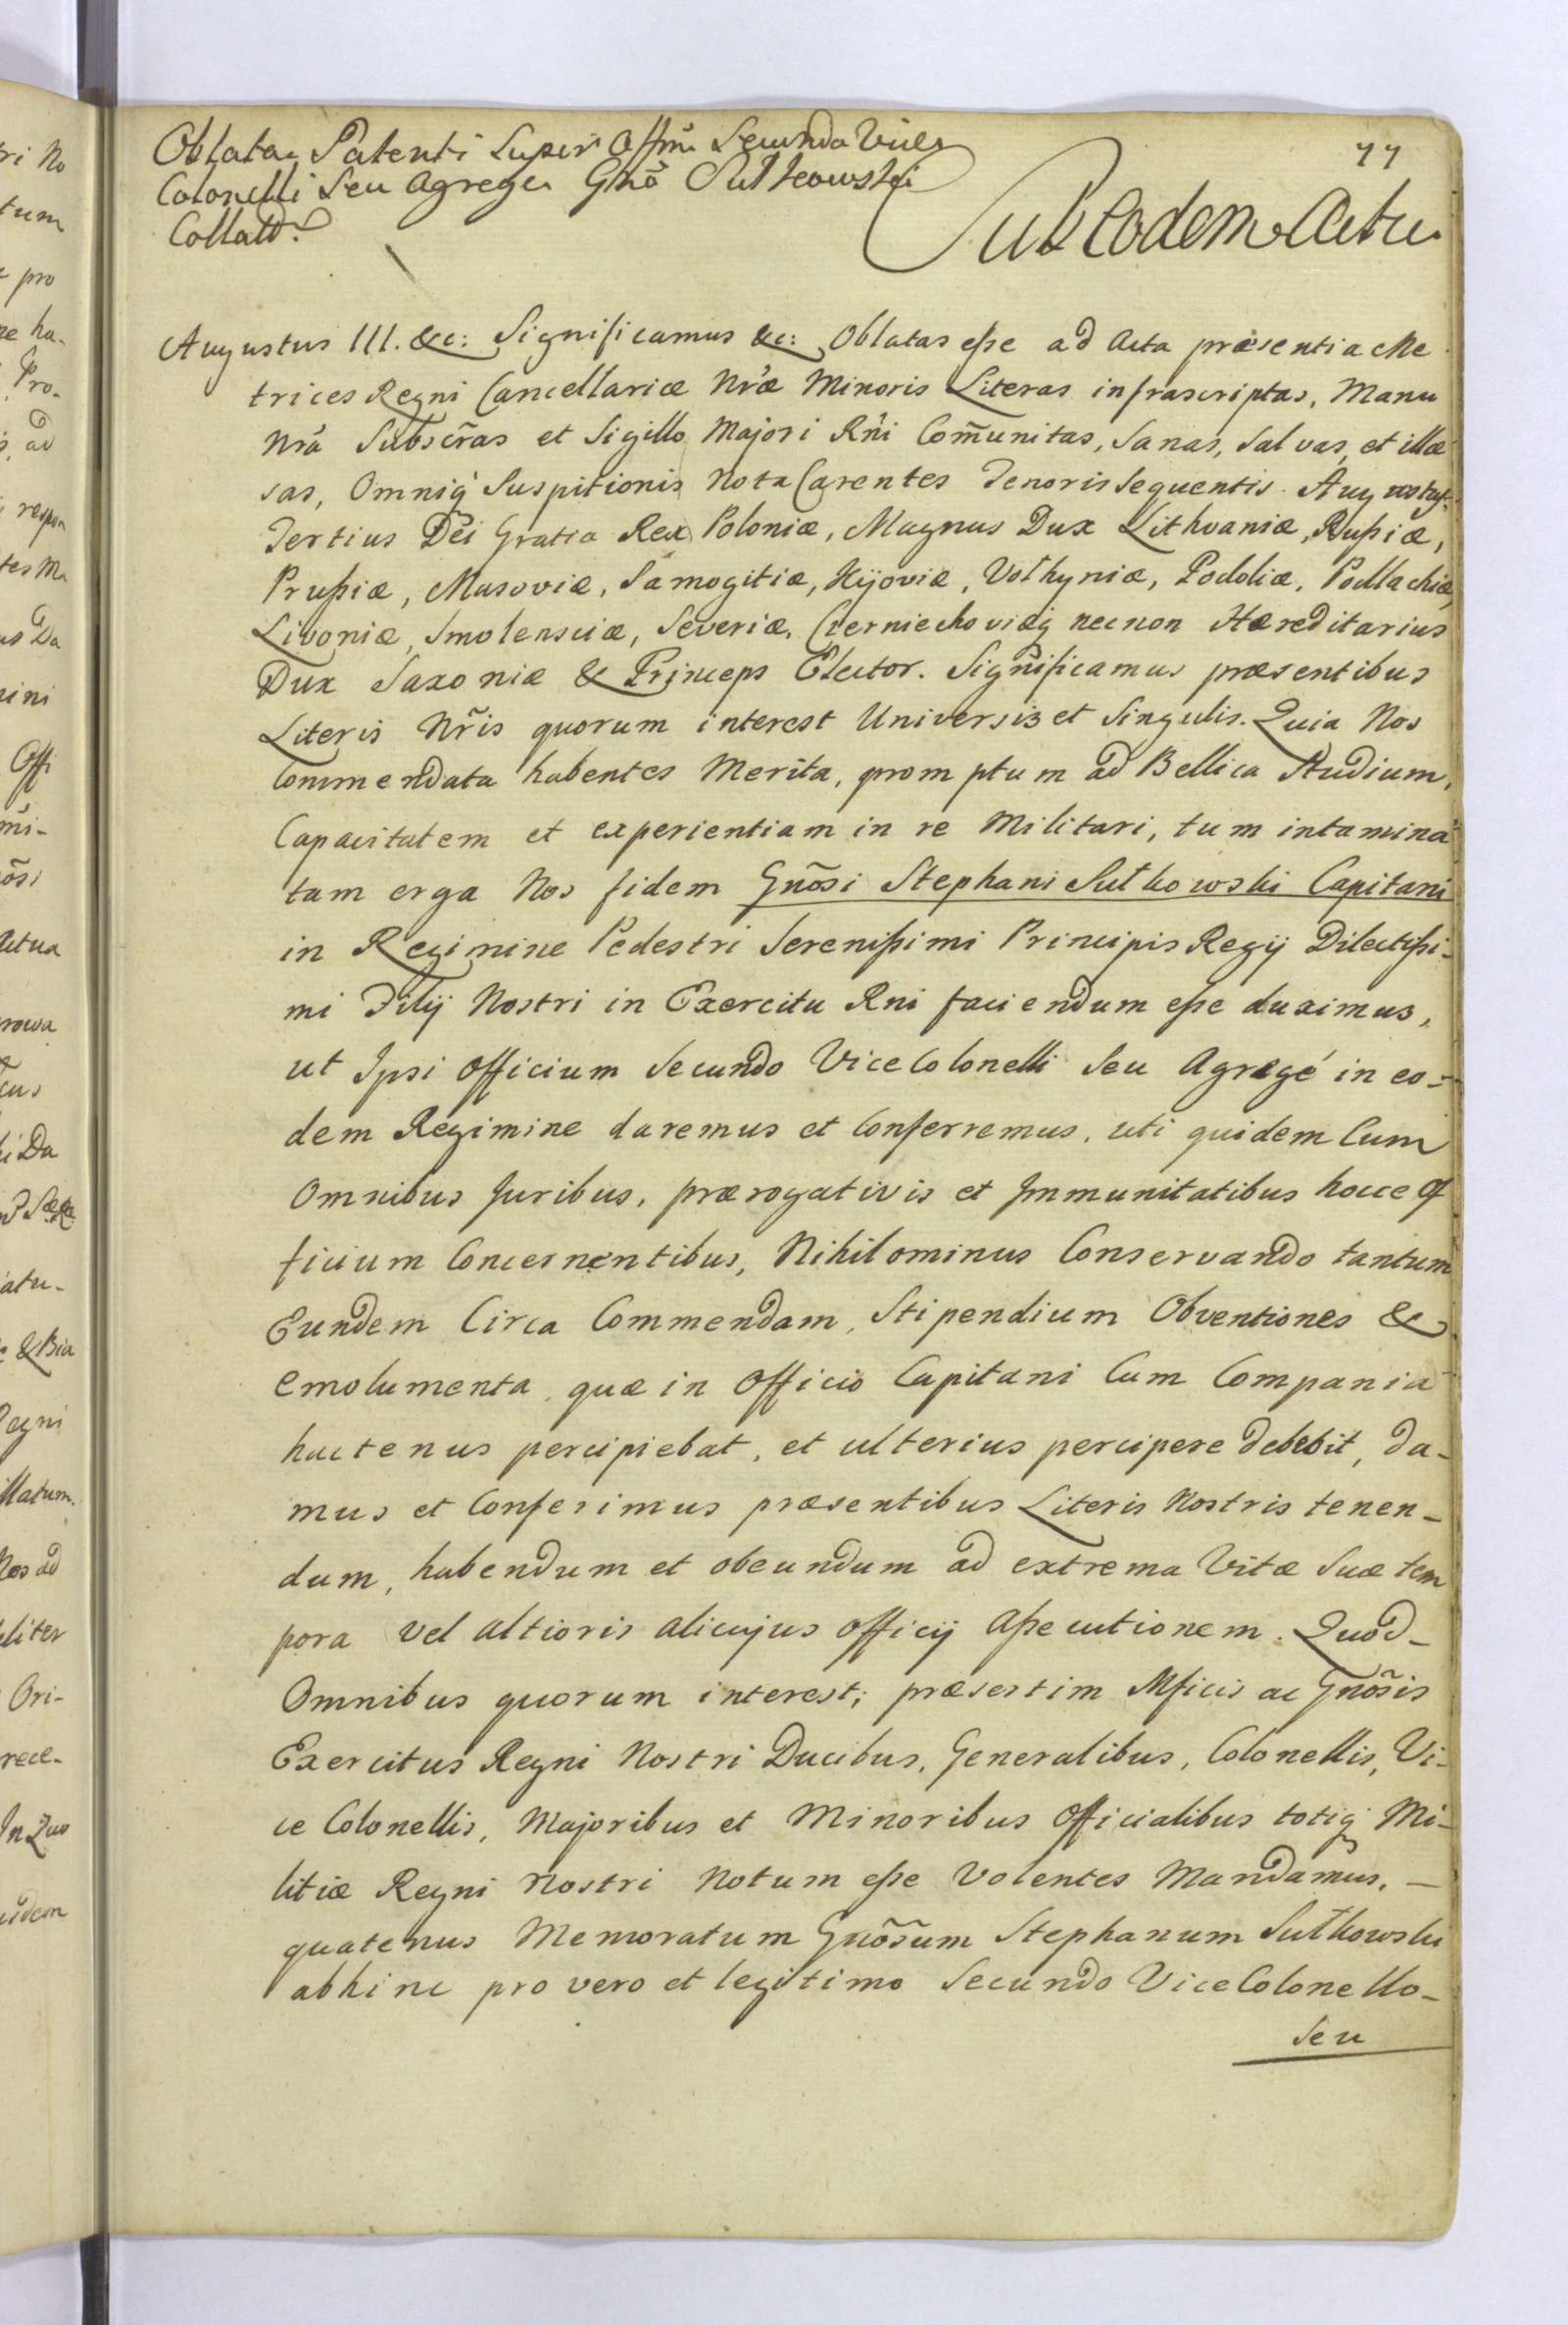 77
Oblata Patenti Super Offm̃ Secundo Vice
Colonelli Seu Agrege Gnõ Sułkowski
Collato.
Sub Eodem Actu
Augustus III. &c: Significamus &c: Oblatas eſse ad Acta præsentia Me
trices Regni Cancellariæ Nræ Minoris Literas infrascriptas, Manu
Nrã Subscr̃as et Sigillo Majori Rñi Com̃unitas, Sanas, Salvas, et illæ
sas, Omniq́ Suspitionis Nota Carentes Tenoris Sequentis. Augustus
Tertius Dei Gratia Rex Poloniæ, Magnus Dux Lithvaniæ, Ruſsiæ,
Pruſsiæ, Masoviæ, Samogitiæ, Kijoviæ, Volhyniæ, Podoliæ, Podlachiæ,
Livoniæ, Smolensciæ, Severiæ, Czerniechoviæq́ necnon Hæreditarius
Dux Saxoniæ & Princeps Elector. Significamus præsentibus
Literis Nr̃is quorum interest Universis et Singulis. Quia Nos
Commendata habentes Merita, promptum ad Bellica Studium,
Capacitatem et experientiam in re Militari, tum intamina
tam erga Nos fidem Gnõsi Stephani Sułkowski Capitani
in Regimine Pedestri Sereniſsimi Principis Regij Dilectiſsi-
mi Filij Nostri in Exercitu Rni faciendum eſse duximus,
ut Ipsi Officium Secundo Vice Colonelli Seu Agregé in eo-
dem Regimine daremus et Conferremus, uti quidem Cum
Omnibus Juribus, prærogativis et Immunitatibus hocce Of
ficium Concernentibus, Nihilominus Conservando tantum
Eundem Circa Commendam, Stipendium Obventiones &
emolumenta, quæ in Officio Capitani Cum Compania
hactenus percipiebat, et ulterius percipere debebit, da-
mus et Conferimus præsentibus Literis Nostris tenen-
dum, habendum et obeundum ad extrema Vitæ Suæ tem
pora vel altioris alicujus officij aſsecutionem. Quod-
Omnibus quorum interest; præsertim Mficis ac Gnõsis
Exercitus Regni Nostri Ducibus, Generalibus, Colonellis, Vi-
ce Colonellis, Majoribus et Minoribus Officialibus totiq́ Mi-
litiæ Regni Nostri Notum eſse Volentes Mandamus, -
quatenus Memoratum Gnõsum Stephanum Sułkowski
abhinc pro vero et legitimo Secundo Vice Colonello-
Seu